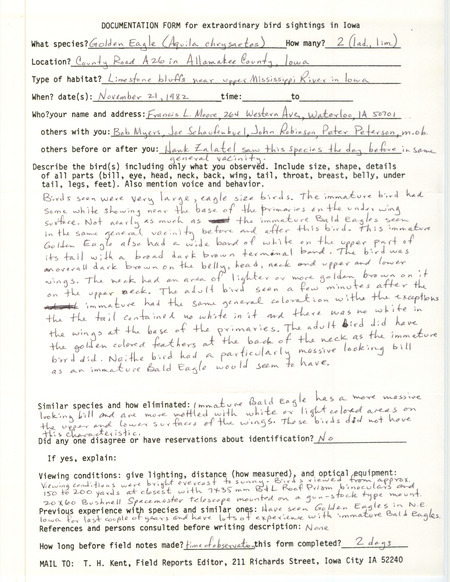 DOCUMENTATION FORM for extraordinary bird sightings in Iowa
What species? Golden Eagle (Aquila chrysaetos) How many? 2 (1ad, 1im)
Location? County Road A26 in Allamakee County, Iowa
Type of habitat? Limestone bluffs near upper Mississippi River in Iowa
When? date(s): November 21, 1982 time: to
Who?your name and address: Francis L. Moore, 264 Western Ave, Waterloo, IA 50701
others with you: Bob Myers, Joe Schaufenbuel, John Robinson, Peter Petersen, m.ob.
others before or after you: Hank Zaletel saw this species the day before in same
general vacinity.
Describe the bird(s) including only what you observed. Include size, shape, details
of all parts (bill, eye, head, neck, back, wing, tail, throat, breast, belly, under
tail, legs, feet). Also mention voice and behavior.
Birds seen were very large, eagle size birds. The immature bird had
some white showing near the base of the primaries on the under wing
surface. Not nearly as much as the immature Bald Eagles seen
in the same general vacinity before and after this bird. This immature
Golden Eagle also had a wide band of white on the upper part of
its tail with a broad dark brown terminal band. The bird was
overall dark brown on the belly, head, neck and upper and lower
wings. The neck had an area of lighter or more golden brown on it
on the upper neck. The adult bird seen a few minutes after the
immature had the same general coloration with the exceptions
the the tail contained no white in it and there was no white in
the wings at the base of the primaries. The adult bird did have
the golden colored feathers at the back of the neck as the immature
bird did. Neither bird had a particularly massive looking bill
as an immature Bald Eagle would seem to have.
Similar species and how eliminated: Immature Bald Eagle has a more massive
looking bill and are more mottled with white or light colored areas on
the upper and lower surfaces of the wings. These birds did not have
this characteristic.
Did any one disagree or have reservations about identification? No
If yes, explain:
Viewing conditions: give lighting, distance (how measured), and optical equipment:
Viewing conditions were bright overcast to sunny. Birds viewed from approx.
150 to 200 yards at closest with 7x35 mm B+L Roof Prism binoculars and
20x60 Bushnell Spacemaster telescope mounted on a gun-stock type mount.
Previous experience with species and similar ones: Have seen Golden Eagles in N.E.
Iowa for last couple of years and have lots of experience with immature Bald Eagles.
References and persons consulted before writing description: None
How long before field notes made? time of observation this form completed? 2 days
MAIL TO: T. H. Kent, Field Reports Editor, 211 Richards Street, Iowa City IA 52240